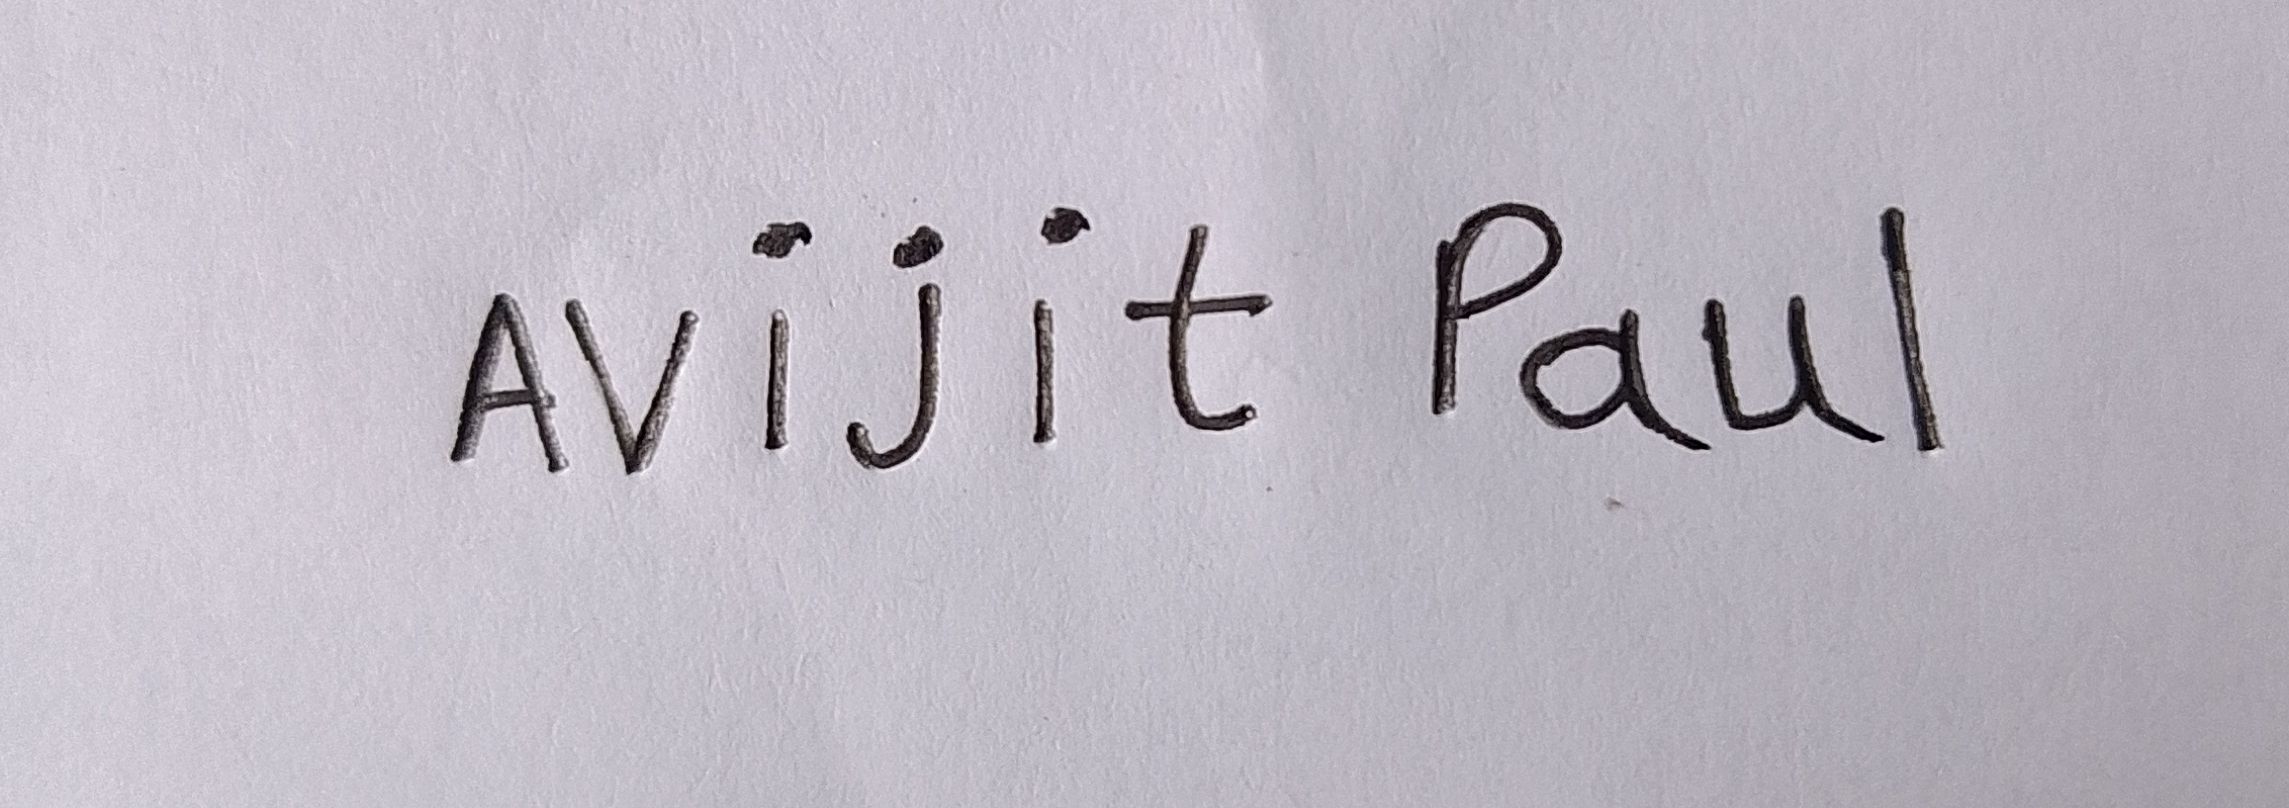 Avijit Paul